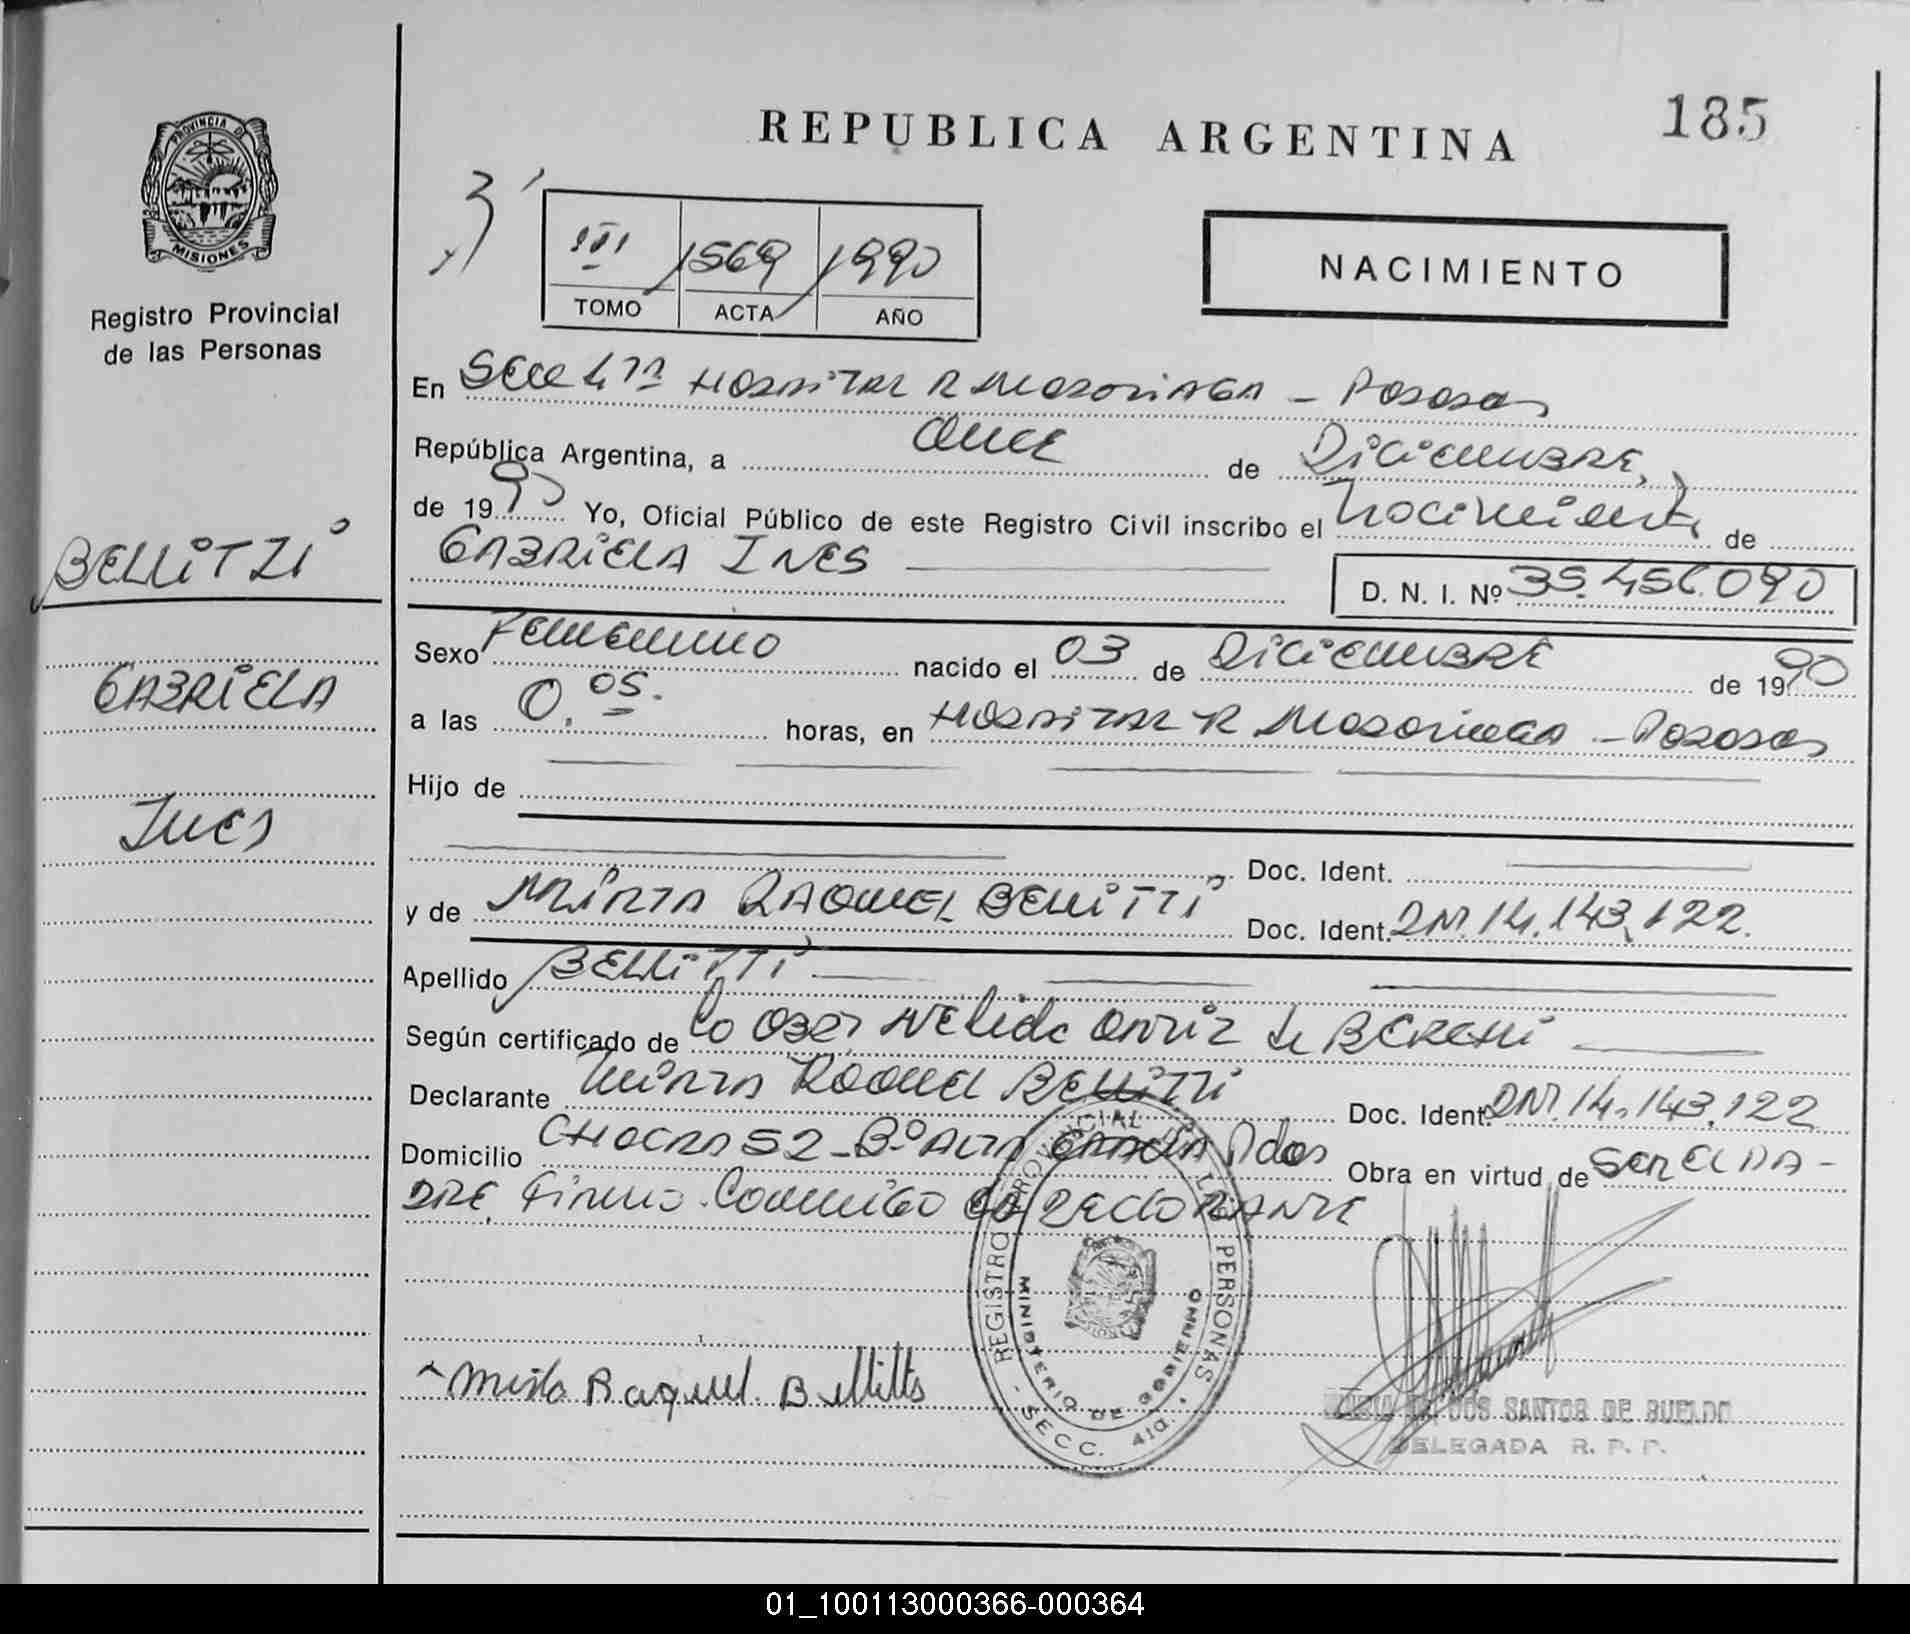 REPUBLICA ARGENTINA
185
PROVINCIA DE
MISIONES
Registro Provincial
de las Personas
III 1569 1990
TOMO ACTA AÑO
NACIMIENTO
En Secc 4ta HOSPITAL R MADARIAGA - Posadas
República Argentina, a once de Diciembre
de 1990 Yo, Oficial Público de este Registro Civil inscribo el Nacimiento de
GABRIELA INES
D. N. I. Nº 35.456.090
BELLITTI
GABRIELA
Ines
Sexo Femenino nacido el 03 de Diciembre de 1990
a las 0.05. horas, en HOSPITAL R MADARIAGA - Posadas
Hijo de
Doc. Ident.
y de MIRTA RAQUEL BELLITTI Doc. Ident. DNI. 14.143.122.
Apellido BELLITTI
Según certificado de la OBST Nelida ORTIZ de
Declarante MIRTA RAQUEL BELLITTI Doc. Ident. DNI. 14.143.122
Domicilio CHACRA 52 - Bº ALTA GRACIA Pdas Obra en virtud de SER EL PA-
DRE. Firma Conmigo LA DECLARANTE
Mirta Raquel Bellitti
REGISTRO PROVINCIAL DE LAS PERSONAS
MINISTERIO DE GOBIERNO
SECC. 4ta.
DOS SANTOS DE BUELDO
DELEGADA R. P. P.
01_100113000366-000364